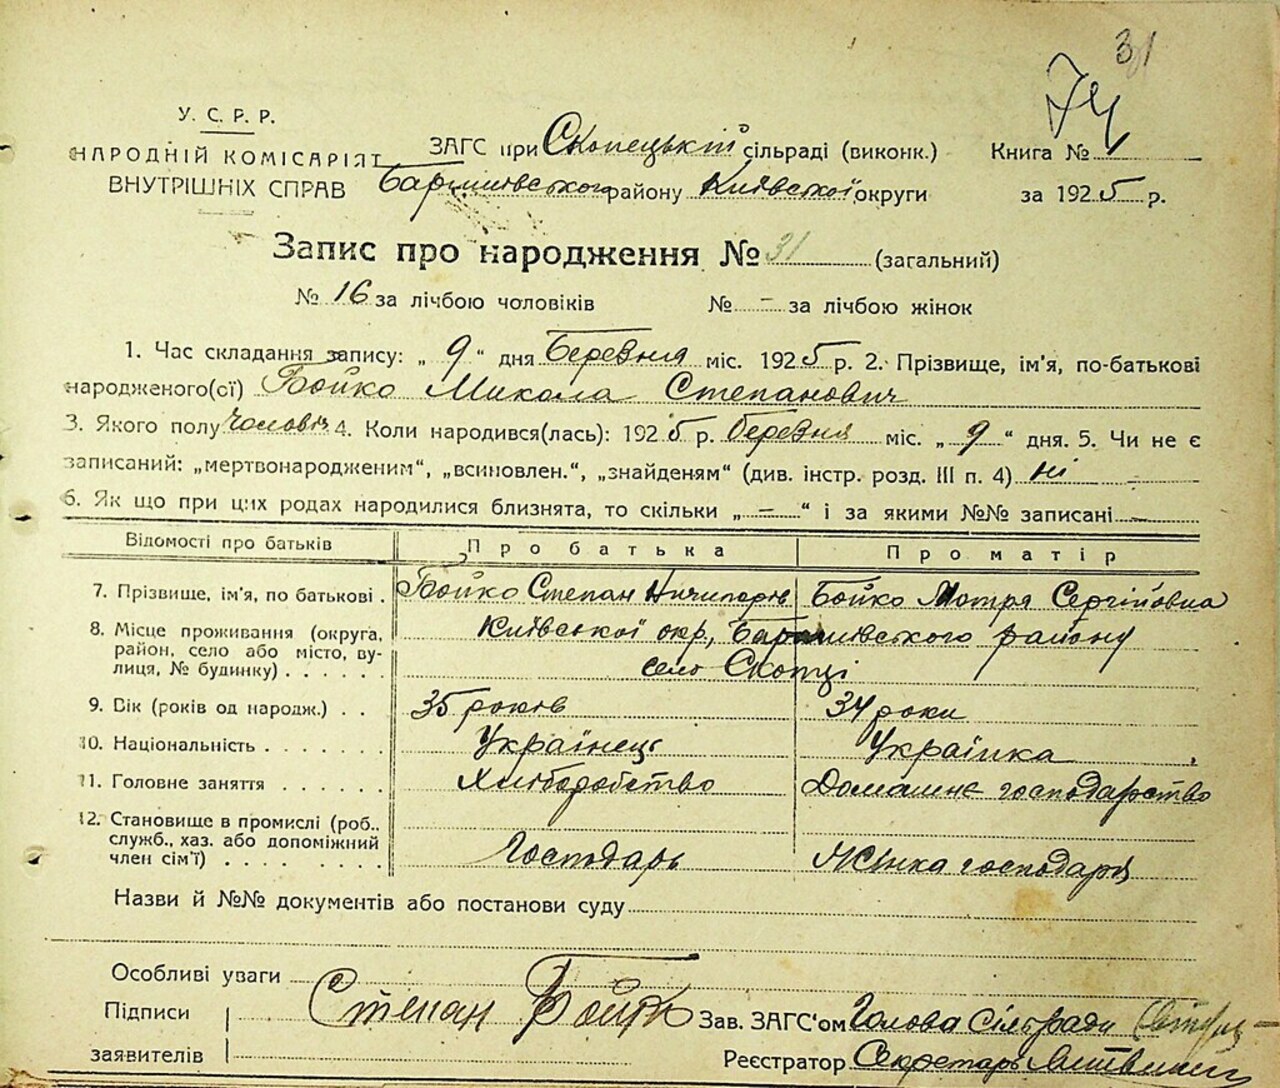 31
74
У. С. Р. Р.
НАРОДНІЙ КОМІСАРІЯТ
ВНУТРІШНІХ СПРАВ
ЗАГС при Скопецькій сільраді (виконк.)
Баришівського району Київської округи
Книга №
за 1925 р.
Запис про народження № 31 (загальний)
№ 16 за лічбою чоловіків № – за лічбою жінок
1. Час складання запису: „ 9 “ дня Березня міс. 1925 р. 2. Прізвище, ім'я, по-батькові
народженого(ої) Бойко Микола Степанович
3. Якого полу чоловіч 4. Коли народився(лась): 1925 р. березня міс. „ 9 “ дня. 5. Чи не є
записаний: „мертвонародженим“, „всиновлен.“, „знайденям“ (див. інстр. розд. III п. 4) ні
6. Як що при цих родах народилися близнята, то скільки „ – “ і за якими №№ записані –
Відомості про батьків Про батька Про матір
7. Прізвище, ім'я, по батькові . Бойко Степан Ничипорів Бойко Мотря Сергійовна
8. Місце проживання (округа, район, село або місто, вулиця, № будинку) . . . . . . Київської окр, Баришівського району
село Скопці
9. Вік (років од народж.) . . 35 років 34 роки
10. Національність . . . . . . . Українець Українка
11. Головне заняття . . . . . . Хліборобство Домашнє господарство
12. Становище в промислі (роб., служб., хаз. або допоміжний член сім'ї) . . . . . . . . Господарь Жінка господаря
Назви й №№ документів або постанови суду
Особливі уваги
Підписи
заявителів
Степан Бойко
Зав. ЗАГС'ом Голова Сільради
Реєстратор Секретарь